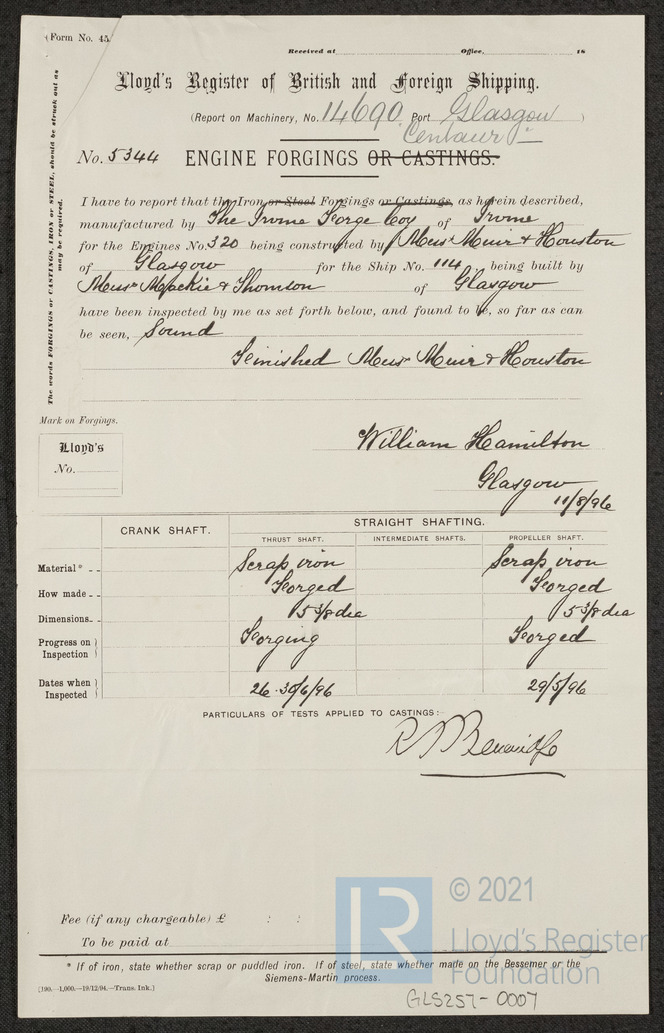 (Form No. 45.
Received at Office. 18
Lloyd's Register of British and Foreign Shipping.
(Report on Machinery, No. 14690 Port Glasgow)
Centaur
No. 5344 ENGINE FORGINGS OR CASTINGS.
The words FORGINGS or CASTINGS, IRON or STEEL, should be struck out as may be required.
I have to report that the Iron or Steel Forgings or Castings, as herein described,
manufactured by The Irvine Forge Coy of Irvine
for the Engines No. 320 being constructed by Messrs Muir & Houston
of Glasgow for the Ship No. 114 being built by
Messrs Mackie & Thomson of Glasgow
have been inspected by me as set forth below, and found to be, so far as can
be seen, Sound
Finished Messrs Muir & Houston
Mark on Forgings.
Lloyd's
No.
William Hamilton
Glasgow
11/8/96
CRANK SHAFT. STRAIGHT SHAFTING.
THRUST SHAFT. INTERMEDIATE SHAFTS. PROPELLER SHAFT.
Material* - - Scrap iron Scrap iron
How made - - Forged Forged
Dimensions - - 5 3/8 dia 5 3/8 dia
Progress on Inspection } Forging Forged
Dates when Inspected } 26·30/6/96 29/5/96
PARTICULARS OF TESTS APPLIED TO CASTINGS:-
Fee (if any chargeable) £ : :
To be paid at
* If of iron, state whether scrap or puddled iron. If of steel, state whether made on the Bessemer or the
Siemens-Martin process.
[190.—1,000.—19/12/94.—Trans. Ink.]
GLS257-0007
LR
© 2021
Lloyd's Register
Foundation